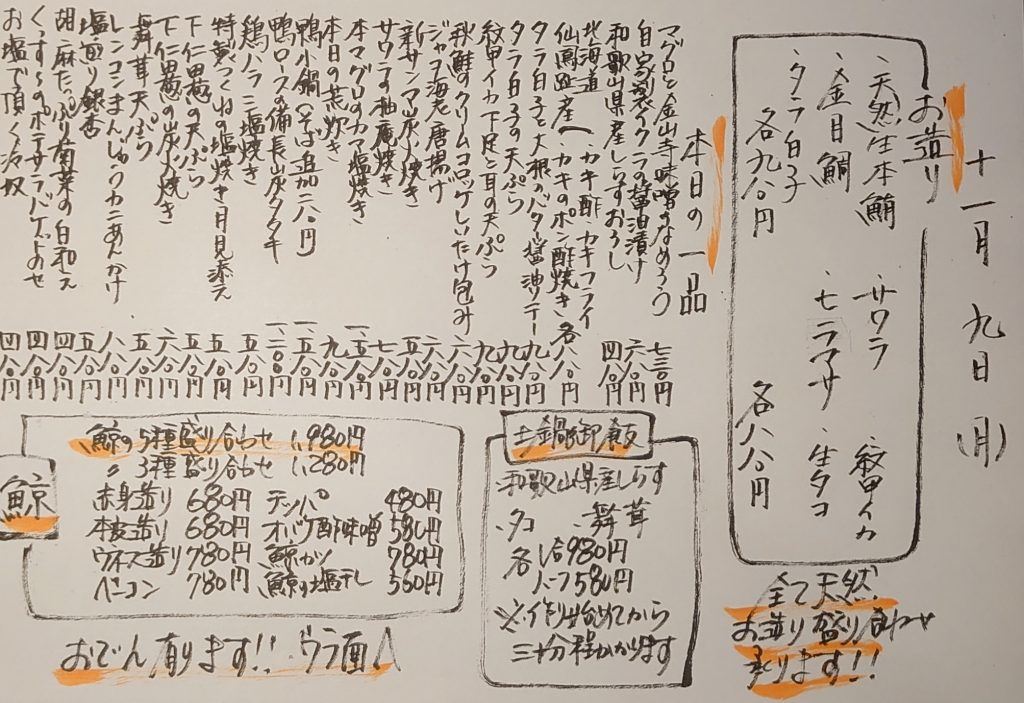 十一月九日(月)
お造り
・天然生本鮪
・サワラ
・紋甲イカ
・金目鯛
・セミマサ
・生タコ
・タラ白子
各九八〇円
各八八〇円
全て天然
お造り盛り合わせ
承ります!!
本日の一品
マグロと金山寺味噌のなめろう 七三〇円
自家製イクラの醤油漬け 六八〇円
和歌山県産しらすおろし 四八〇円
北海道
仙鳳趾産へ・カキ酢・カキフライ
・カキのポン酢焼き 各八八〇円
タラ白子と大根のバター醤油ソテー 九八〇円
タラ白子の天ぷら 九八〇円
紋甲イカ下足と耳の天ぷら 九八〇円
秋鮭のクリームコロッケしいたけ包み 六八〇円
ジャコ海老唐揚げ 六八〇円
新サンマ炭火焼き 五八〇円
サワラの柚庵焼き 七八〇円
本マグロのカマ塩焼き 一、五八〇円
本日の荒炊き 九八〇円
鴨小鍋(そば追加二八〇円) 一、五八〇円
鴨ロースの備長山炭タタキ 一、二〇〇円
鶏ハラミ塩焼き 五八〇円
特製つくねの塩焼き月見添え 五五〇円
下仁田葱の天ぷら 六八〇円
下仁田葱の炭火焼き 六八〇円
舞茸天ぷら 五八〇円
レンコンまんじゅうカニあんかけ 八八〇円
塩煎り銀杏 五八〇円
胡麻たっぷり菊菜の白和え 四八〇円
くっすんのポテサラバゲットのせ 四八〇円
お塩で頂く冷奴 四八〇円
土鍋御飯
・和歌山県産しらす
・タコ ・舞茸
各1合980円
ハーフ580円
※作り始めてから
三十分程かかります
鯨
鯨の5種盛り合わせ 1,980円
〃 3種盛り合わせ 1,280円
赤身造り 680円 テッパ 480円
本皮造り 680円 オバケ酢味噌 580円
ウネス造り 780円 鯨カツ 780円
ベーコン 780円 鯨の塩干し 560円
おでん有ります!! ウラ面へ